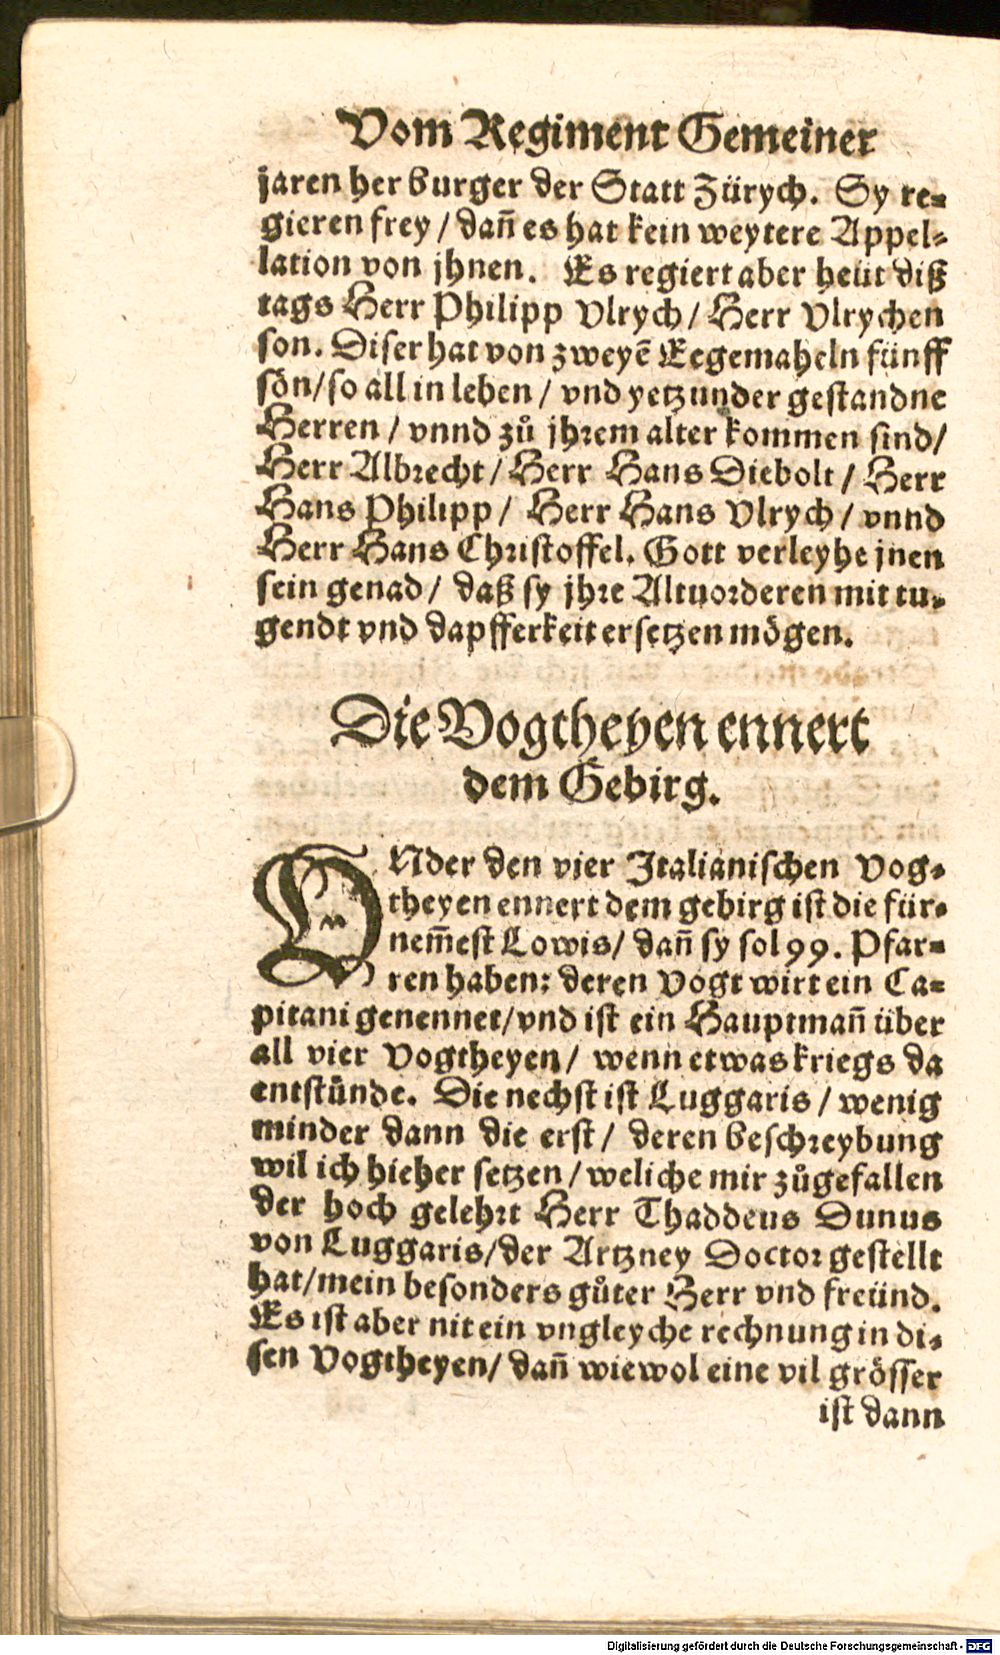 Vom Regiment Gemeiner
jaren her burger der Statt Zürych. Sy re-
gieren frey / dañ es hat kein weytere Appel-
lation von jhnen. Es regiert aber heüt diß
tags Herr Philipp Vlrych / Herr Vlrychen
son. Diser hat von zweyẽ Eegemaheln fünff
sön / so all in leben / vnd yetzunder gestandne
Herren / vnnd zů jhrem alter kommen sind /
Herr Albrecht / Herr Hans Diebolt / Herr
Hans Philipp / Herr Hans Vlrych / vnnd
Herr Hans Christoffel. Gott verleyhe jnen
sein genad / daß sy jhre Altuorderen mit tu-
gendt vnd dapfferkeit ersetzen mögen.
Die Vogtheyen ennert
dem Gebirg.
VNder den vier Italianischen Vog-
theyen ennert dem gebirg ist die für-
nem̃est Lowis / dañ sy sol 99. Pfar-
ren haben: deren Vogt wirt ein Ca-
pitani genennet / vnd ist ein Hauptmañ über
all vier Vogtheyen / wenn etwas kriegs da
entstünde. Die nechst ist Luggaris / wenig
minder dann die erst / deren beschreybung
wil ich hieher setzen / weliche mir zůgefallen
der hoch gelehrt Herr Thaddeus Dunus
von Luggaris / der Artzney Doctor gestellt
hat / mein besonders gůter Herr vnd freünd.
Es ist aber nit ein vngleyche rechnung in di-
sen Vogtheyen / dañ wiewol eine vil grösser
ist dann
Digitalisierung gefördert durch die Deutsche Forschungsgemeinschaft - DFG